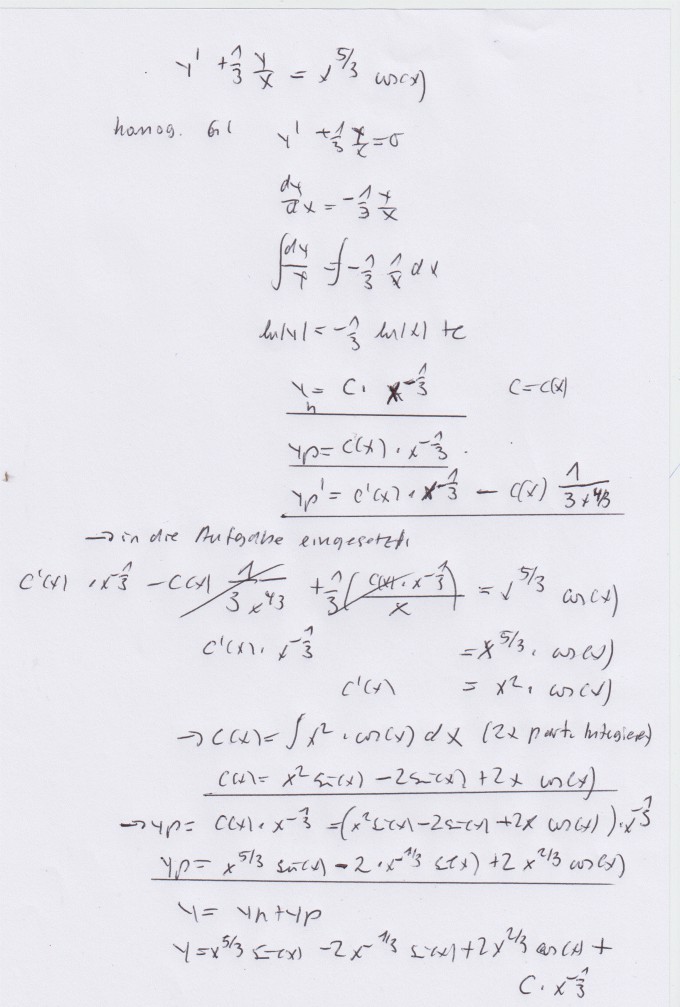 y' + 1/3 y/x = x^5/3 cos(x)
homog. Gl y' + 1/3 y/x = 0
dy/dx = -1/3 y/x
∫ dy/y = ∫ -1/3 1/x dx
ln|y| = -1/3 ln|x| + c
y_h = C · x^-1/3 C = C(x)
yp = C(x) · x^-1/3
yp' = C'(x) · x^-1/3 - C(x) 1/(3x^4/3)
→ in die Aufgabe eingesetzt:
C'(x) · x^-1/3 - C(x) 1/(3x^4/3) + 1/3 (C(x) · x^-1/3 / x) = x^5/3 cos(x)
C'(x) · x^-1/3 = x^5/3 · cos(x)
C'(x) = x^2 · cos(x)
→ C(x) = ∫ x^2 · cos(x) dx (2x part. Integrieren)
C(x) = x^2 sin(x) - 2 sin(x) + 2x cos(x)
→ yp = C(x) · x^-1/3 = (x^2 sin(x) - 2 sin(x) + 2x cos(x)) · x^-1/3
yp = x^5/3 sin(x) - 2 · x^-1/3 sin(x) + 2 x^2/3 cos(x)
y = yh + yp
y = x^5/3 sin(x) - 2x^-1/3 sin(x) + 2x^2/3 cos(x) +
C · x^-1/3